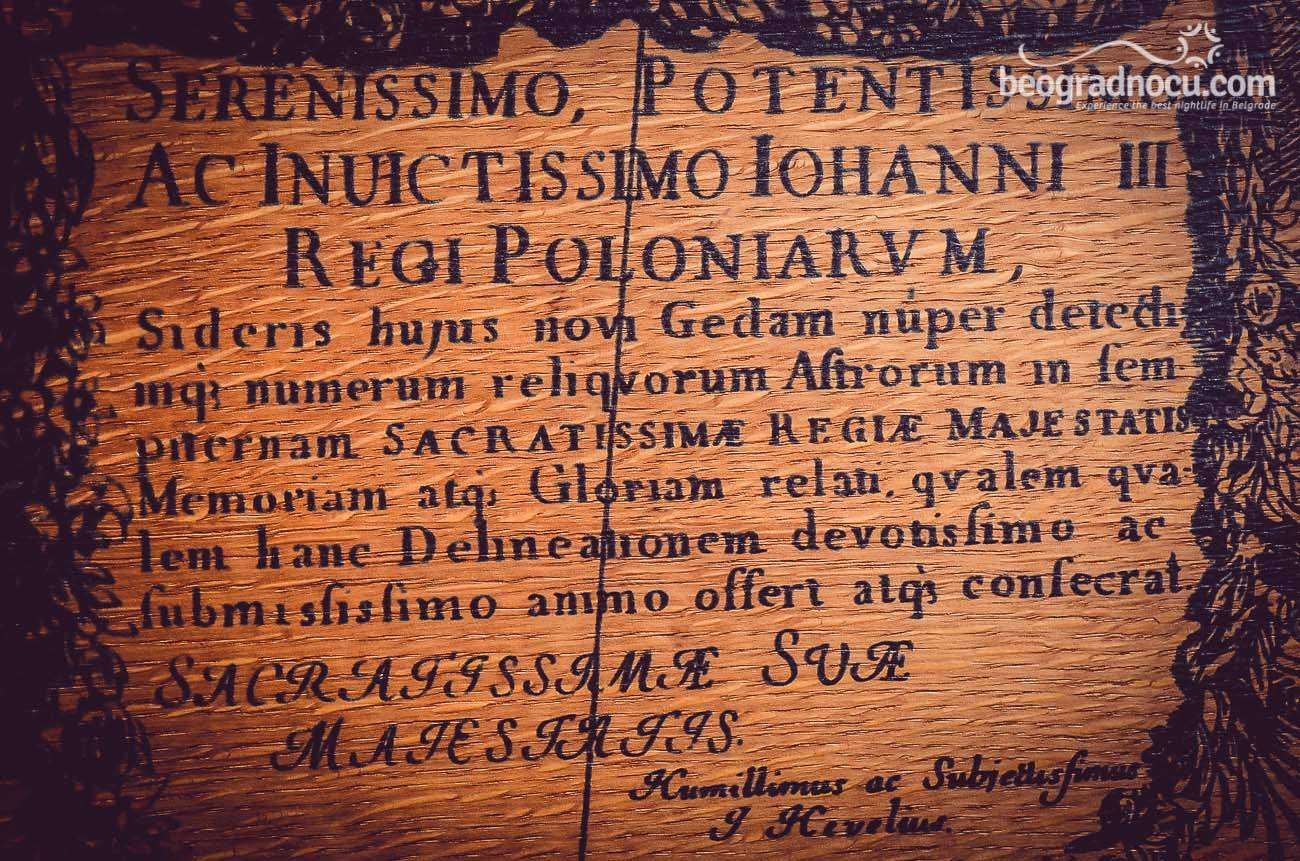 beogradnocu.com
Experience the best nightlife in Belgrade
SERENISSIMO, POTENTISSIMO
AC INUICTISSIMO IOHANNI III
REGI POLONIARVM,
Sideris hujus novi Gedani nuper detecti
inq; numerum reliqvorum Aſtrorum in ſem-
piternam SACRATISSIMÆ REGIÆ MAJESTATIS
Memoriam atq; Gloriam relati, qvalem qva-
lem hanc Delineationem devotisſimo ac
ſubmisſisſimo animo offert atq; conſecrat
SACRATISSIMÆ SUÆ
MAIESTATIS.
Humillimus ac Subjectisſimus
J Hevelius.